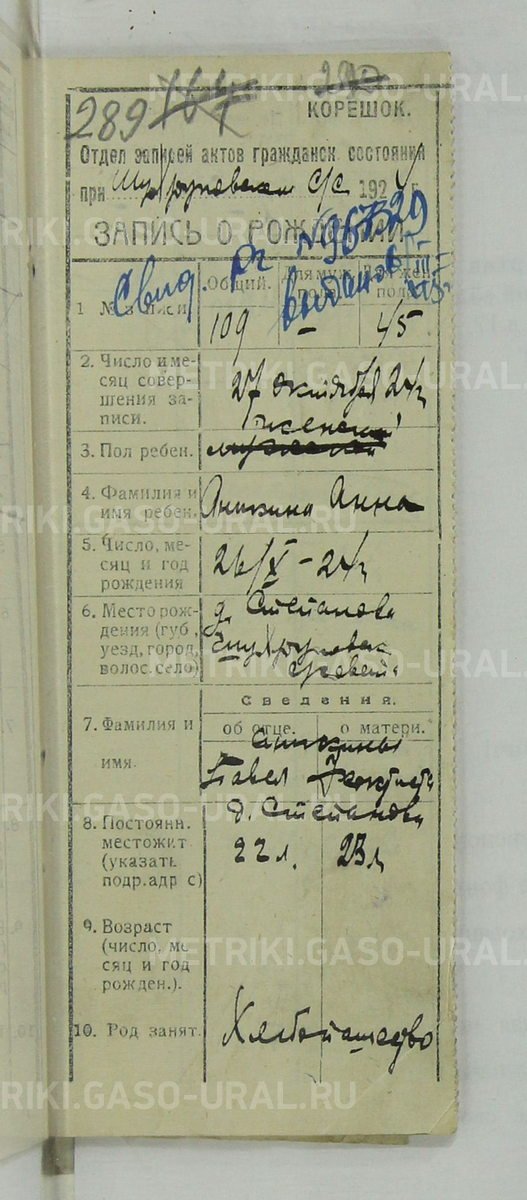 289
КОРЕШОК.
Отдел записей актов гражданск. состояния
при с/с 192
ЗАПИСЬ О РОЖДЕНИИ.
Свид. №
Общий. Для муж. пола Для жен. пола
1 № записи 109 – 45
2. Число и месяц совершения записи.
27 октября 24 г
женский
3. Пол ребен.
4. Фамилия и имя ребен.
Аникина Анна
5. Число, месяц и год рождения
26/X – 24 г
6. Место рождения (губ., уезд, город, волос. село)
д. Степанова
Сведения.
об отце. о матери.
7. Фамилия и имя.
Аникины
Павел
8. Постоянн. местожит. (указать подр. адрес)
д. Степанова
22 л. 23 л
9. Возраст (число, месяц и год рожден.).
10. Род занят.
Хлебопашество
METRIKI.GASO-URAL.RU